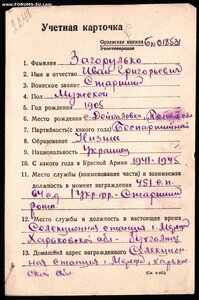 © FORUMS-SU.COM
Учетная карточка
Орденская книжка
Удостоверение
1. Фамилия Загорулько
2. Имя и отчество Иван Григорьевич
3. Воинское звание Старшина
4. Пол Мужской
5. Год рождения 1905
6. Место рождения с. Дейкаловка
7. Партийность (с какого года) Беспартийный
8. Образование Низшее
9. Национальность Украинец
10. С какого года в Красной Армии 1941-1945
11. Место службы (наименование части) и занимаемая
должность в момент награждения 451 с.п.
64 с.д. 1 Укр. фр. - Старшина
роты
12. Место службы и должность в настоящее время
Селекционная станция п. Мерефа
Харьковской обл -
13. Домашний адрес награжденного Селекцион-
ная станция п. Мерефа, Харьков-
ской обл.
(См. н/об.)